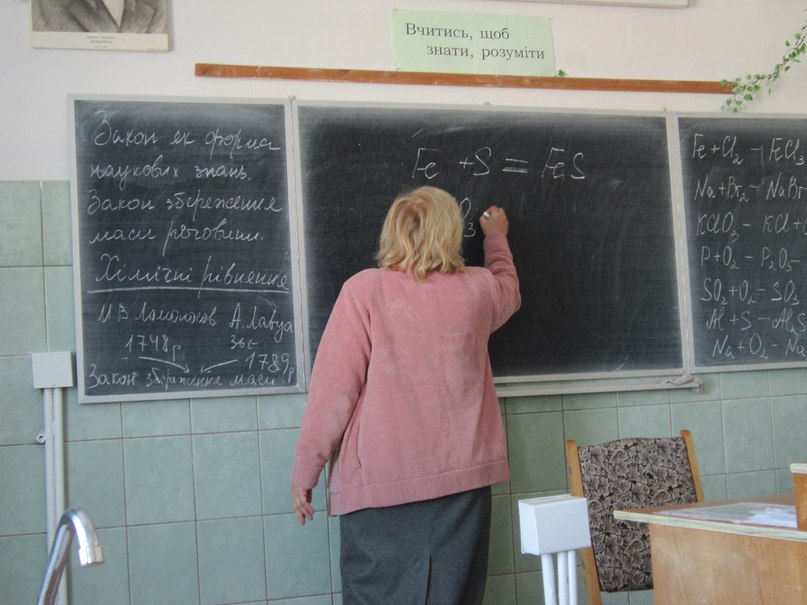 Вчитись, щоб
знати, розуміти
Закон як форма
наукових знань.
Закон збереження
маси речовини.
Хімічні рівняння
М В Ломоносов А. Лавуа
зьє
1748р 1789р
Закон збереження маси
Fe + S = FeS
O
3
Fe + Cl₂ — FeCl₃
Na + Br₂ — NaBr
KClO₃ — KCl +
P + O₂ — P₂O₅
SO₂ + O₂ — SO₃
Al + S — Al₂S
Na + O₂ — Na